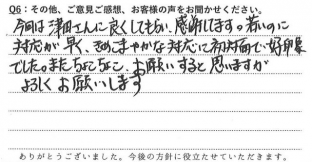 Q6：その他、ご意見ご感想、お客様の声をお聞かせください。
今回は津田さんに良くしてもらい、感謝してます。若いのに
対応が早く、きめこまやかな対応に初対面で好印象
でした。またちょこちょこ、お願いすると思いますが
よろしくお願いします
ありがとうございました。今後の方針に役立たせていただきます。